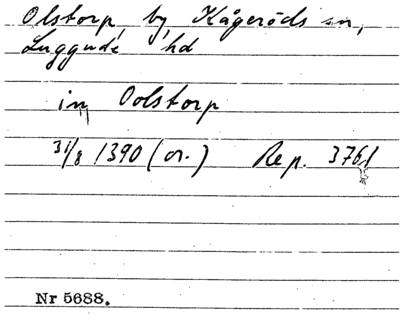 Olstorp, by, Kågeröds sn,
Luggude hd
in Oolstorp
31/8 1390 (or.) Rep. 3761
Nr 5688.